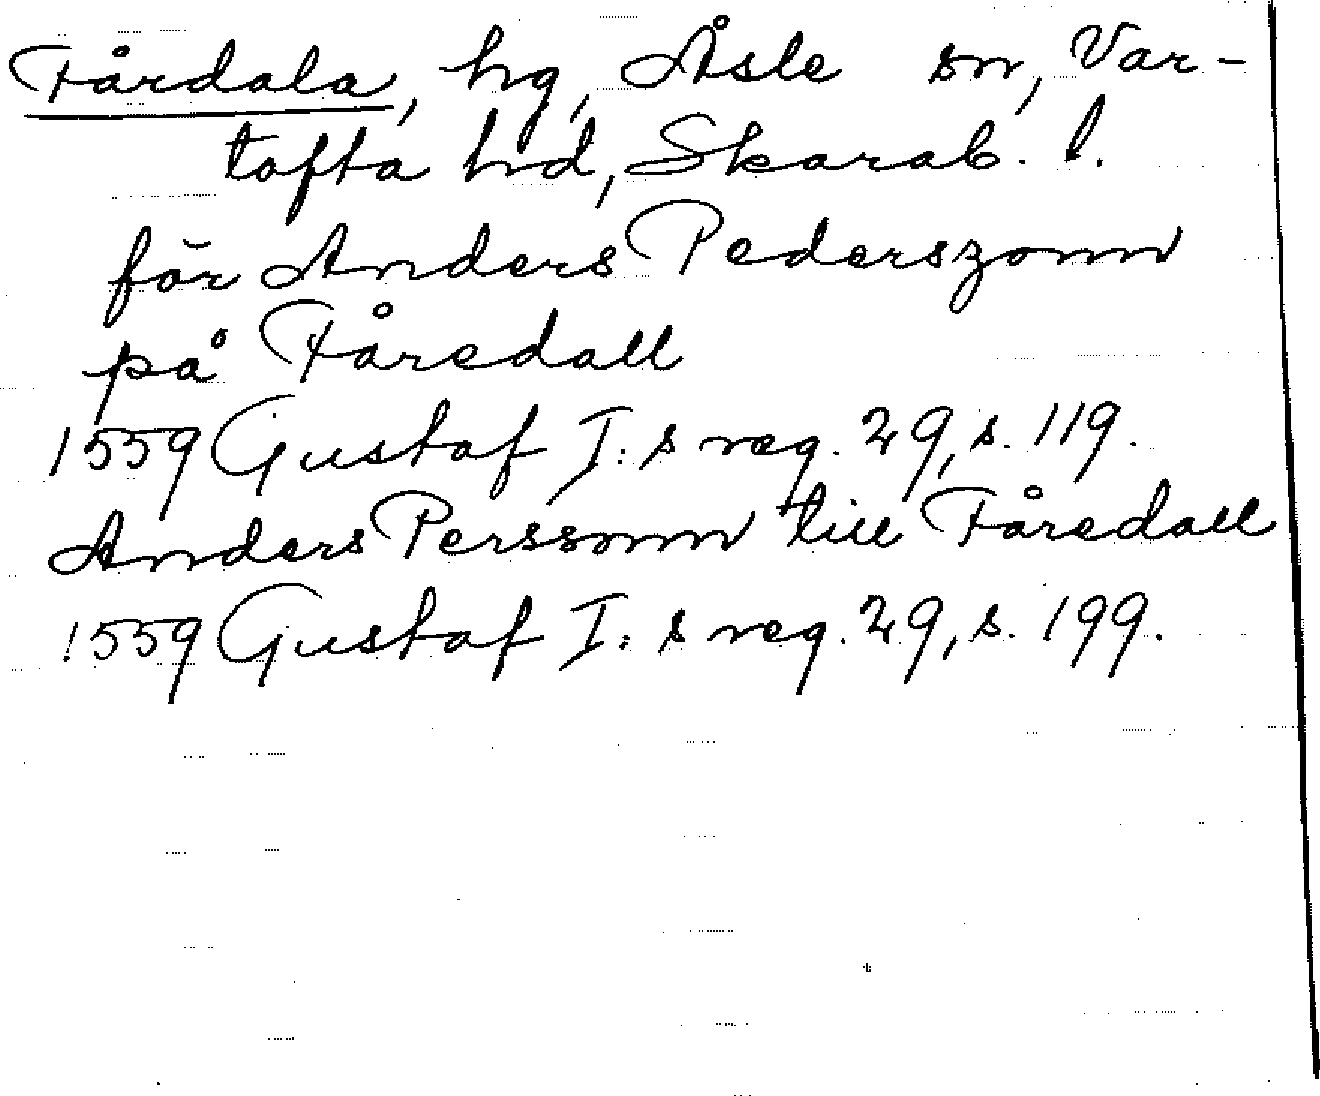 Fårdala, hg, Åsle sn, Var-
tofta hd, Skarab. l.
för Anders Pederszonn
på Fåredall
1559 Gustaf I:s reg. 29, s. 119.
Anders Perssonn till Fåredall
1559 Gustaf I:s reg. 29, s. 199.